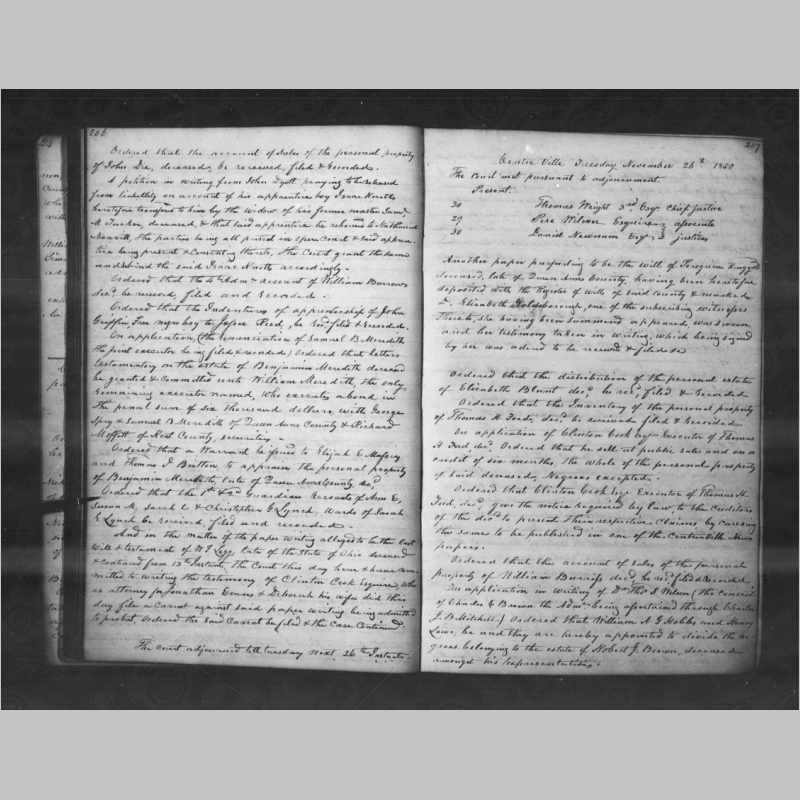 206
Ordered that the account of sales of the personal property
of John Dix, deceased, be received, filed & recorded.
A petition in writing from John Lyott praying to be released
from liability on account of his apprentice boy Isaac North
heretofore transferred to him by the widow of his former master
A Tucker, deceased, & that said apprentice be rebound to Nathaniel
the parties being all present in open Court & said appren-
tice being present & consenting thereto, the Court grant the same
and rebind the said Isaac North accordingly.
Ordered that the 4th Adn: account of William Burrows
decd be received, filed and recorded.
Ordered that the Indentures of apprenticeship of John
Griffin Free negro boy to Jesse Reed, be recd filed & recorded.
On application, (the renunciation of Samuel B. Meredith
the joint executor being filed & recorded) Ordered that letters
testamentary on the estate of Benjamin Meredith deceased
be granted & Committed unto William Meredith, the only
remaining executor named, who executes a bond in
The penal sum of six thousand dollars, with George
Spry & Samuel B Meredith of Queen Anns County & Richard
Moffett of Kent County, securities.
Ordered that a Warrant be issued to Elijah E. Massey
and Thomas J Britton to appraise the personal property
of Benjamin Meredith, late of Queen Anns County decd
Ordered that the 1st & 2d Guardian Accounts of Ann E,
Susan M, Sarah C & Christopher G Lynch, Wards of Sarah
E Lynch be received, filed and recorded.
And in the matter of the paper writing alleged to be the last
Will & testament of late of the State of Ohio deceased
& continued from 12th Instant, The Court this day hear & have com-
mitted to writing the testimony of Clinton Cook Esquire, who
as attorney for Jonathan Evans & Deborah his wife did this
day file a Caveat against said paper writing being admitted
to probat, Ordered the said Caveat be filed & the Case Continued
The Court adjourned till tuesday next 26th Instant.
207
Centre Ville Tuesday November 26th 1850
The Court met pursuant to adjournment.
Present.
30 Thomas Wright 3rd Esqr Chief justice
29 Pere Wilmer Esquire & associate
30 Daniel Newnam Esqr justices
Another paper purporting to be the will of Peregrine
deceased, late of Queen Anns County, having been heretofore
deposited with the Register of wills of said County & marked
D. Elizabeth Goldsborough, one of the subscribing witnesses
thereto, she having been summoned appeared, was sworn
and her testimony taken in writing, which being signed
by her was ordered to be received & filed
Ordered that the distribution of the personal estate
of Elizabeth Blunt decd be recd, filed & Recorded
Ordered that the Inventory of the personal property
of Thomas H. Ford, decd be received filed & Recorded
On application of Clinton Cook Esqr Executor of Thomas
H Ford, decd Ordered that he sell at public sale and on a
credit of six months, the whole of the personal property
of said deceased, Negroes excepted.
Ordered that Clinton Cook Esqr Executor of Thomas H.
Ford, decd, give the notice required by Law, to the creditors
of the decd to present Their respective Claims, by causing
the same to be published in one of the Centreville News
papers.
Ordered that the account of sales of the personal
property of William Burroughs decd be recd filed & recorded.
On application in writing of Dr Thos. S. Wilson (the consent
of Charles C Brown the Admr being ascertained through Charles
J. B. Mitchell) Ordered that William A G Hobbs and Henry
Lowe, be and they are hereby appointed to divide the ne-
groes belonging to the estate of Robert J. Brown, deceased
amongst his representatives.